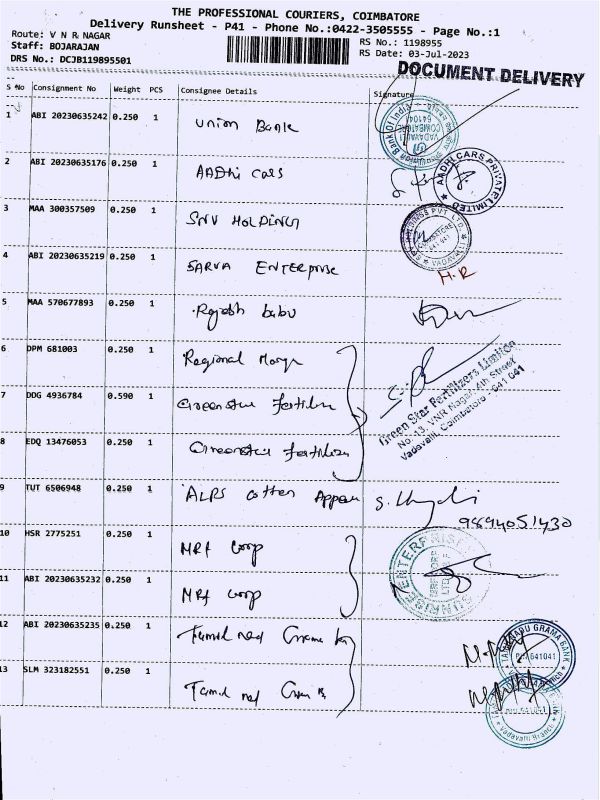 THE PROFESSIONAL COURIERS, COIMBATORE
Delivery Runsheet - P41 - Phone No.:0422-3505555 - Page No.:1
Route: V N R NAGAR
Staff: BOJARAJAN
DRS No.: DCJB119895501
RS No.: 1198955
RS Date: 03-Jul-2023
DOCUMENT DELIVERY
S No Consignment No Weight PCS Consignee Details Signature
1 ABI 20230635242 0.250 1 Union Bank
2 ABI 20230635176 0.250 1 AADhi cars
AADHI CARS PRIVATE LIMITED
3 MAA 300357509 0.250 1 SNV HOLDING
4 ABI 20230635219 0.250 1 SARVA ENTERPRISE
H.R
5 MAA 570677893 0.250 1 Rajesh babu
6 DPM 681003 0.250 1 Regional
7 DDG 4936784 0.590 1 Greenstar Fertilizer
8 EDQ 13476053 0.250 1 Greenstar Fertilizer
Green Star Fertilizers Limition
No.-13, VNR Nagar, 4th Street
Vadavalli, Coimbatore - 641 041
9 TUT 6506948 0.250 1 ALPS cotton
9894051430
10 HSR 2775251 0.250 1 MRF Corp
11 ABI 20230635232 0.250 1 MRF Corp
12 ABI 20230635235 0.250 1 Tamil nad
13 SLM 323182551 0.250 1 Tamil nad